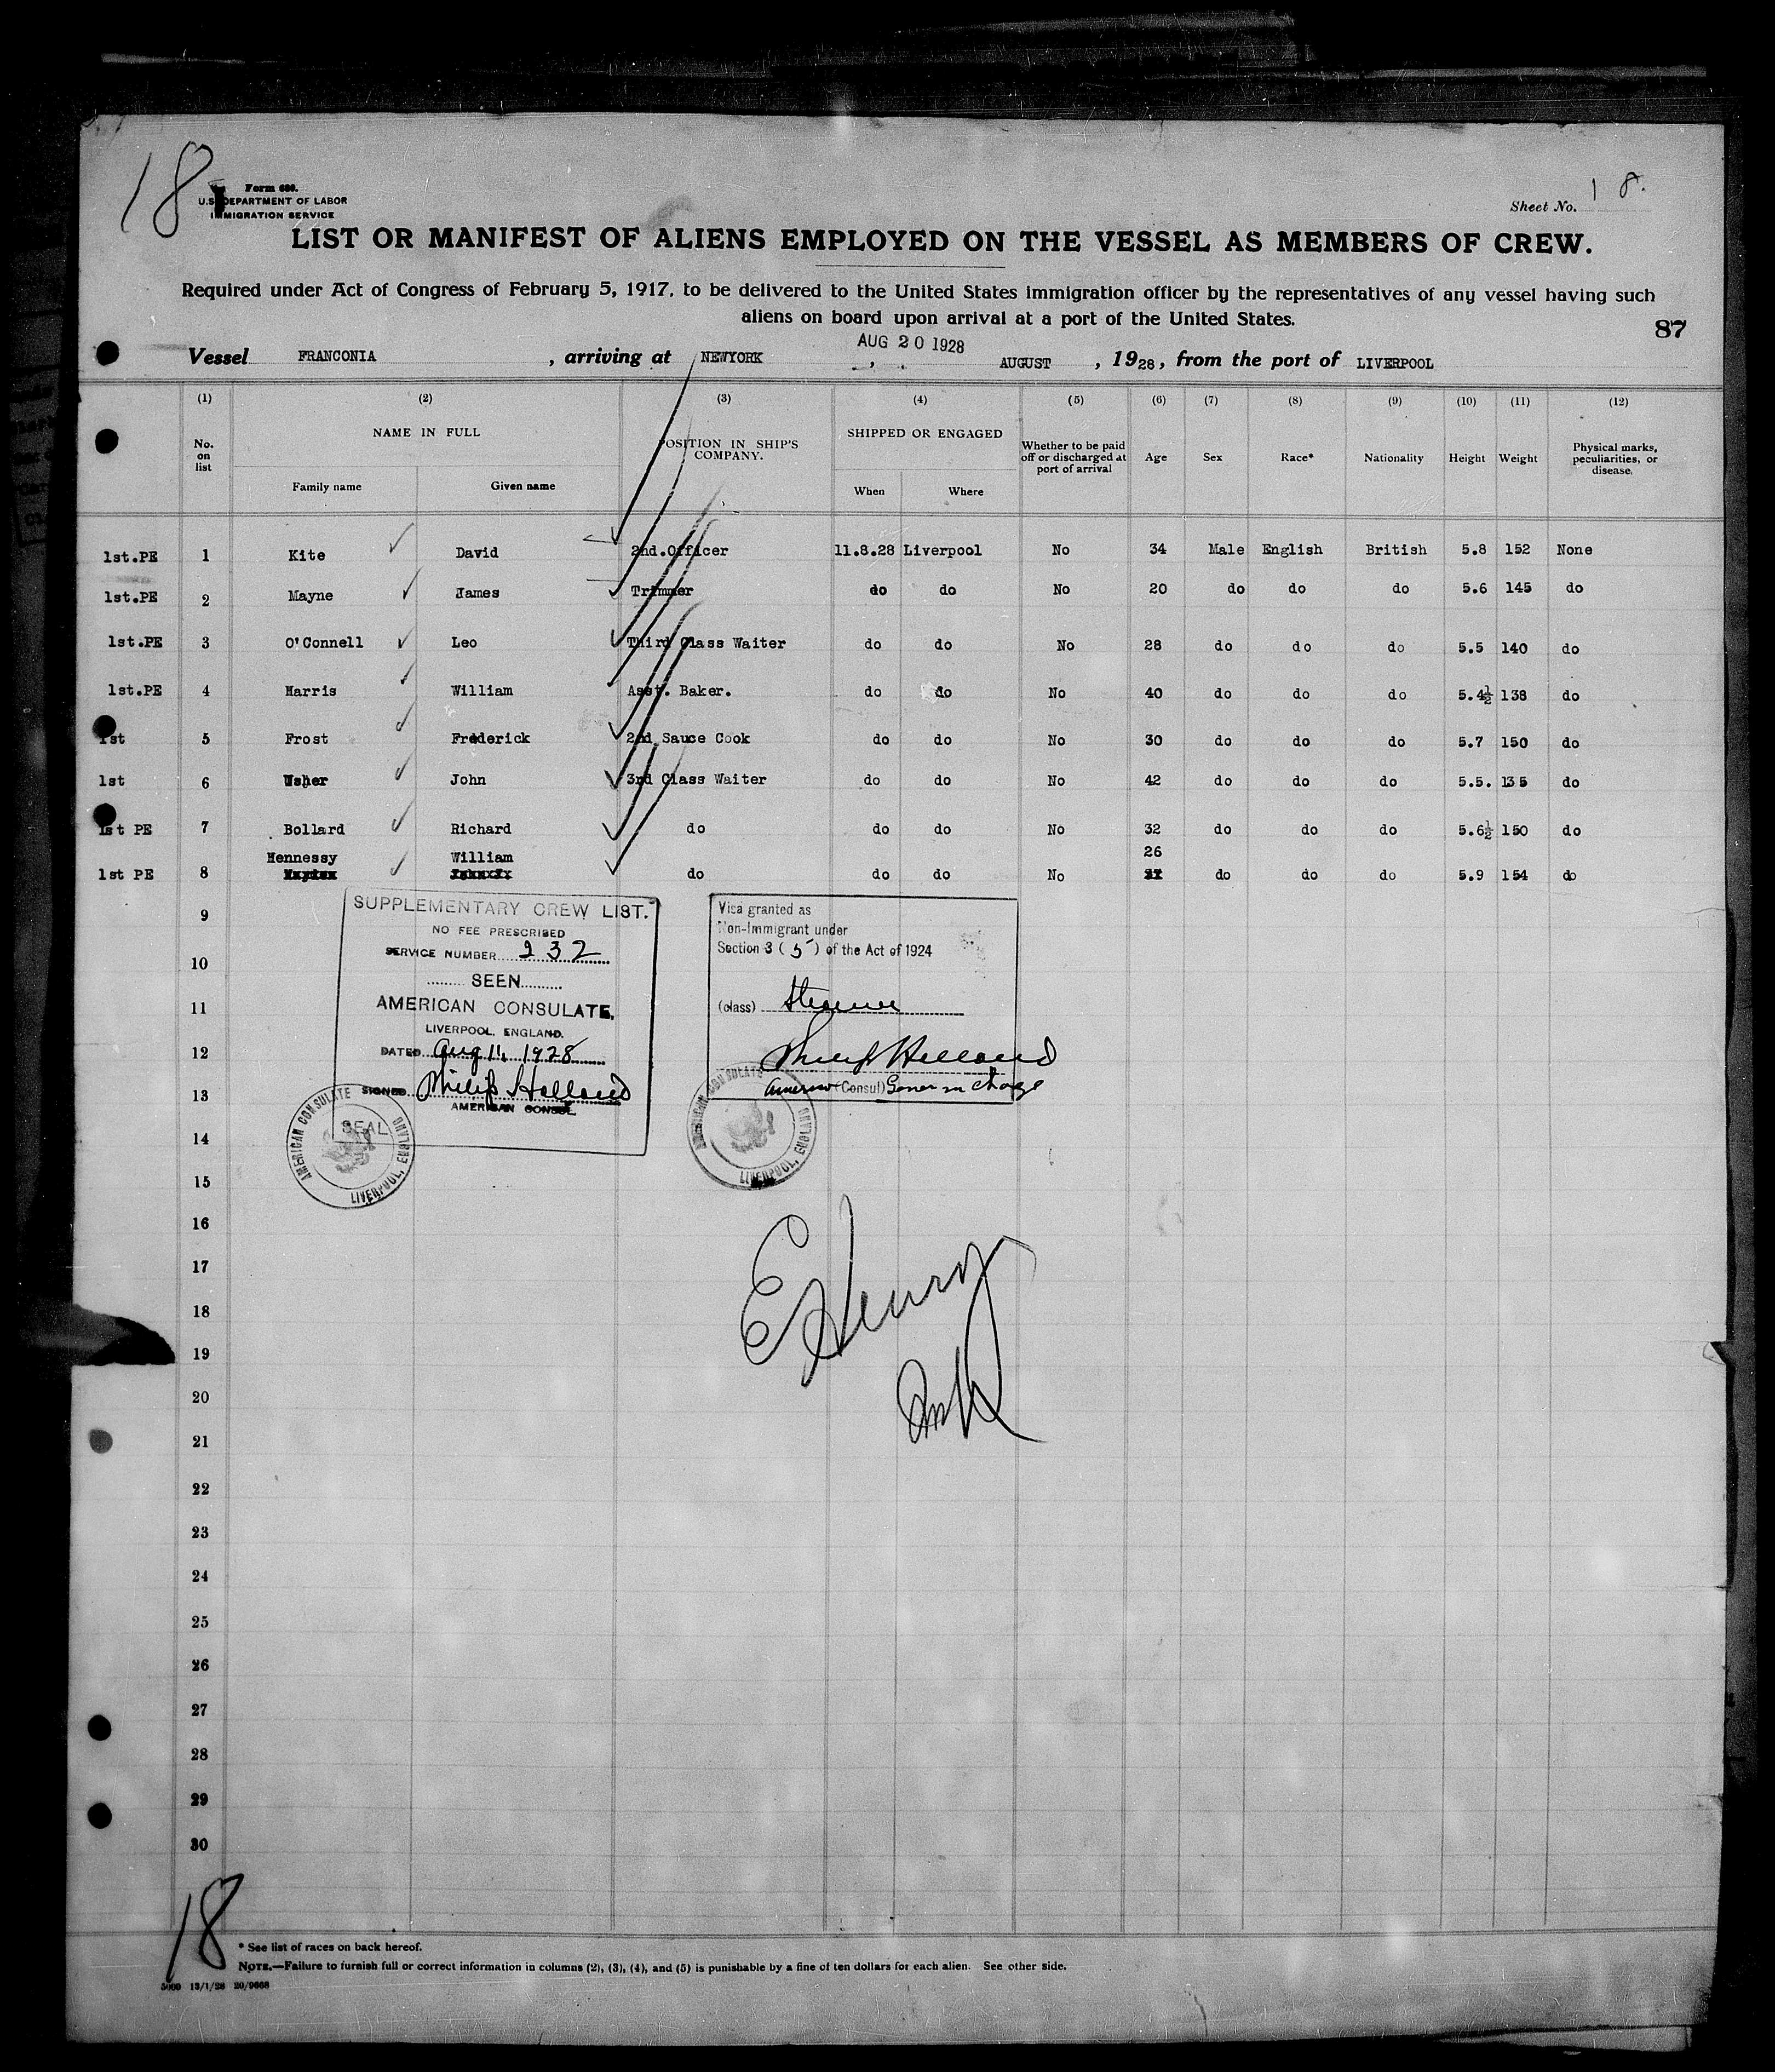 18
Form 680.
U.S. DEPARTMENT OF LABOR
IMMIGRATION SERVICE
Sheet No. 18.
LIST OR MANIFEST OF ALIENS EMPLOYED ON THE VESSEL AS MEMBERS OF CREW.
Required under Act of Congress of February 5, 1917, to be delivered to the United States immigration officer by the representatives of any vessel having such
aliens on board upon arrival at a port of the United States.
87
AUG 20 1928
Vessel FRANCONIA, arriving at NEWYORK, AUGUST, 1928, from the port of LIVERPOOL
(1) (2) (3) (4) (5) (6) (7) (8) (9) (10) (11) (12)
No. on list NAME IN FULL Family name Given name POSITION IN SHIP'S COMPANY. SHIPPED OR ENGAGED When Where Whether to be paid off or discharged at port of arrival Age Sex Race* Nationality Height Weight Physical marks, peculiarities, or disease.
1st.PE 1 Kite David 2nd.Officer 11.8.28 Liverpool No 34 Male English British 5.8 152 None
1st.PE 2 Mayne James Trimmer do do No 20 do do do 5.6 145 do
1st.PE 3 O'Connell Leo Third Class Waiter do do No 28 do do do 5.5 140 do
1st.PE 4 Harris William Asst. Baker. do do No 40 do do do 5.4½ 138 do
1st 5 Frost Frederick 2nd Sauce Cook do do No 30 do do do 5.7 150 do
1st 6 Usher John 3rd Class Waiter do do No 42 do do do 5.5. 135 do
1st PE 7 Bollard Richard do do do No 32 do do do 5.6½ 150 do
Hennessy William 26
1st PE 8 do do do No do do do 5.9 154 do
9
10
11
12
13
14
15
16
17
18
19
20
21
22
23
24
25
26
27
28
29
30
SUPPLEMENTARY CREW LIST.
NO FEE PRESCRIBED
SERVICE NUMBER 232
SEEN
AMERICAN CONSULATE,
LIVERPOOL, ENGLAND.
DATED Aug 11, 1928
SIGNED Philip Holland
AMERICAN CONSUL
SEAL
AMERICAN CONSULATE LIVERPOOL, ENGLAND
Visa granted as
Non-Immigrant under
Section 3 (5) of the Act of 1924
(class)
Philip Holland
American (Consul) General in charge
AMERICAN CONSULATE LIVERPOOL, ENGLAND
E Henry
18
* See list of races on back hereof.
NOTE.—Failure to furnish full or correct information in columns (2), (3), (4), and (5) is punishable by a fine of ten dollars for each alien. See other side.
5000 13/1/28 20/9668